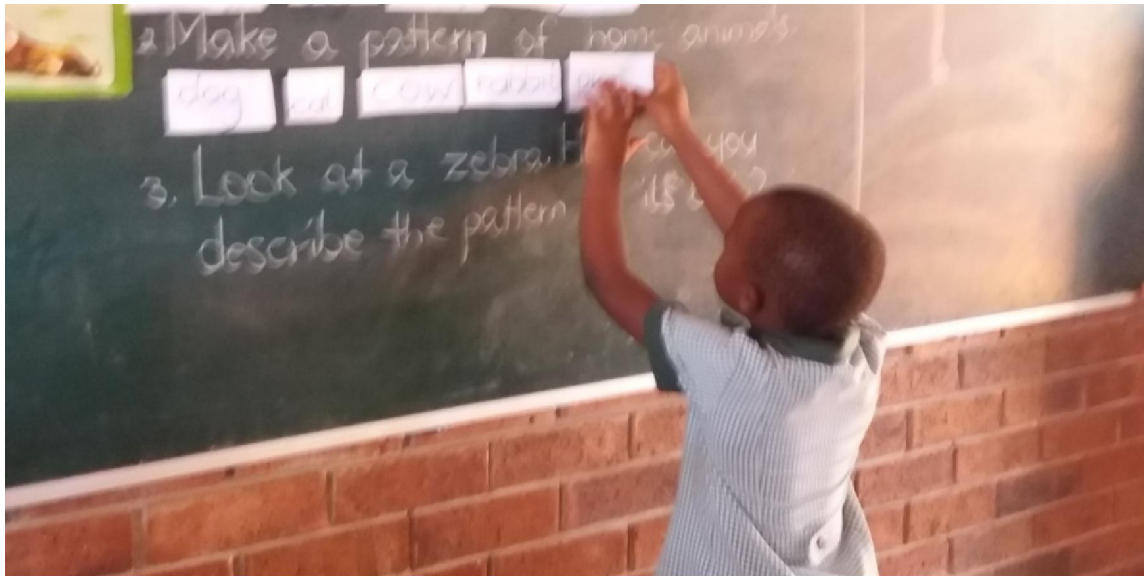 2 Make a pattern of home animals.
dog cat cow rabbit
3. Look at a zebra. you
describe the pattern its